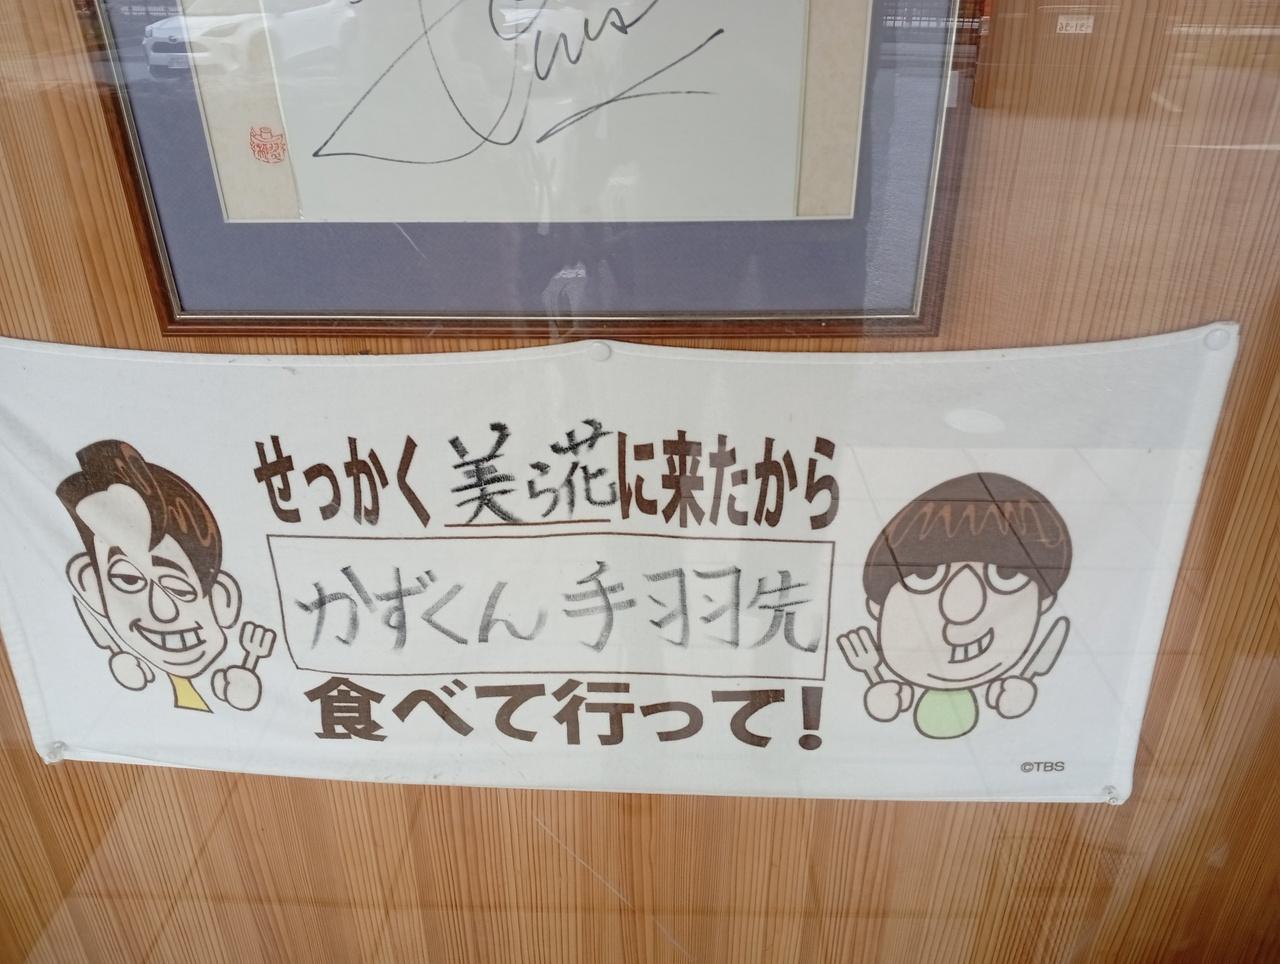 せっかく美ら花に来たから
かずくん手羽先
食べて行って!
©TBS